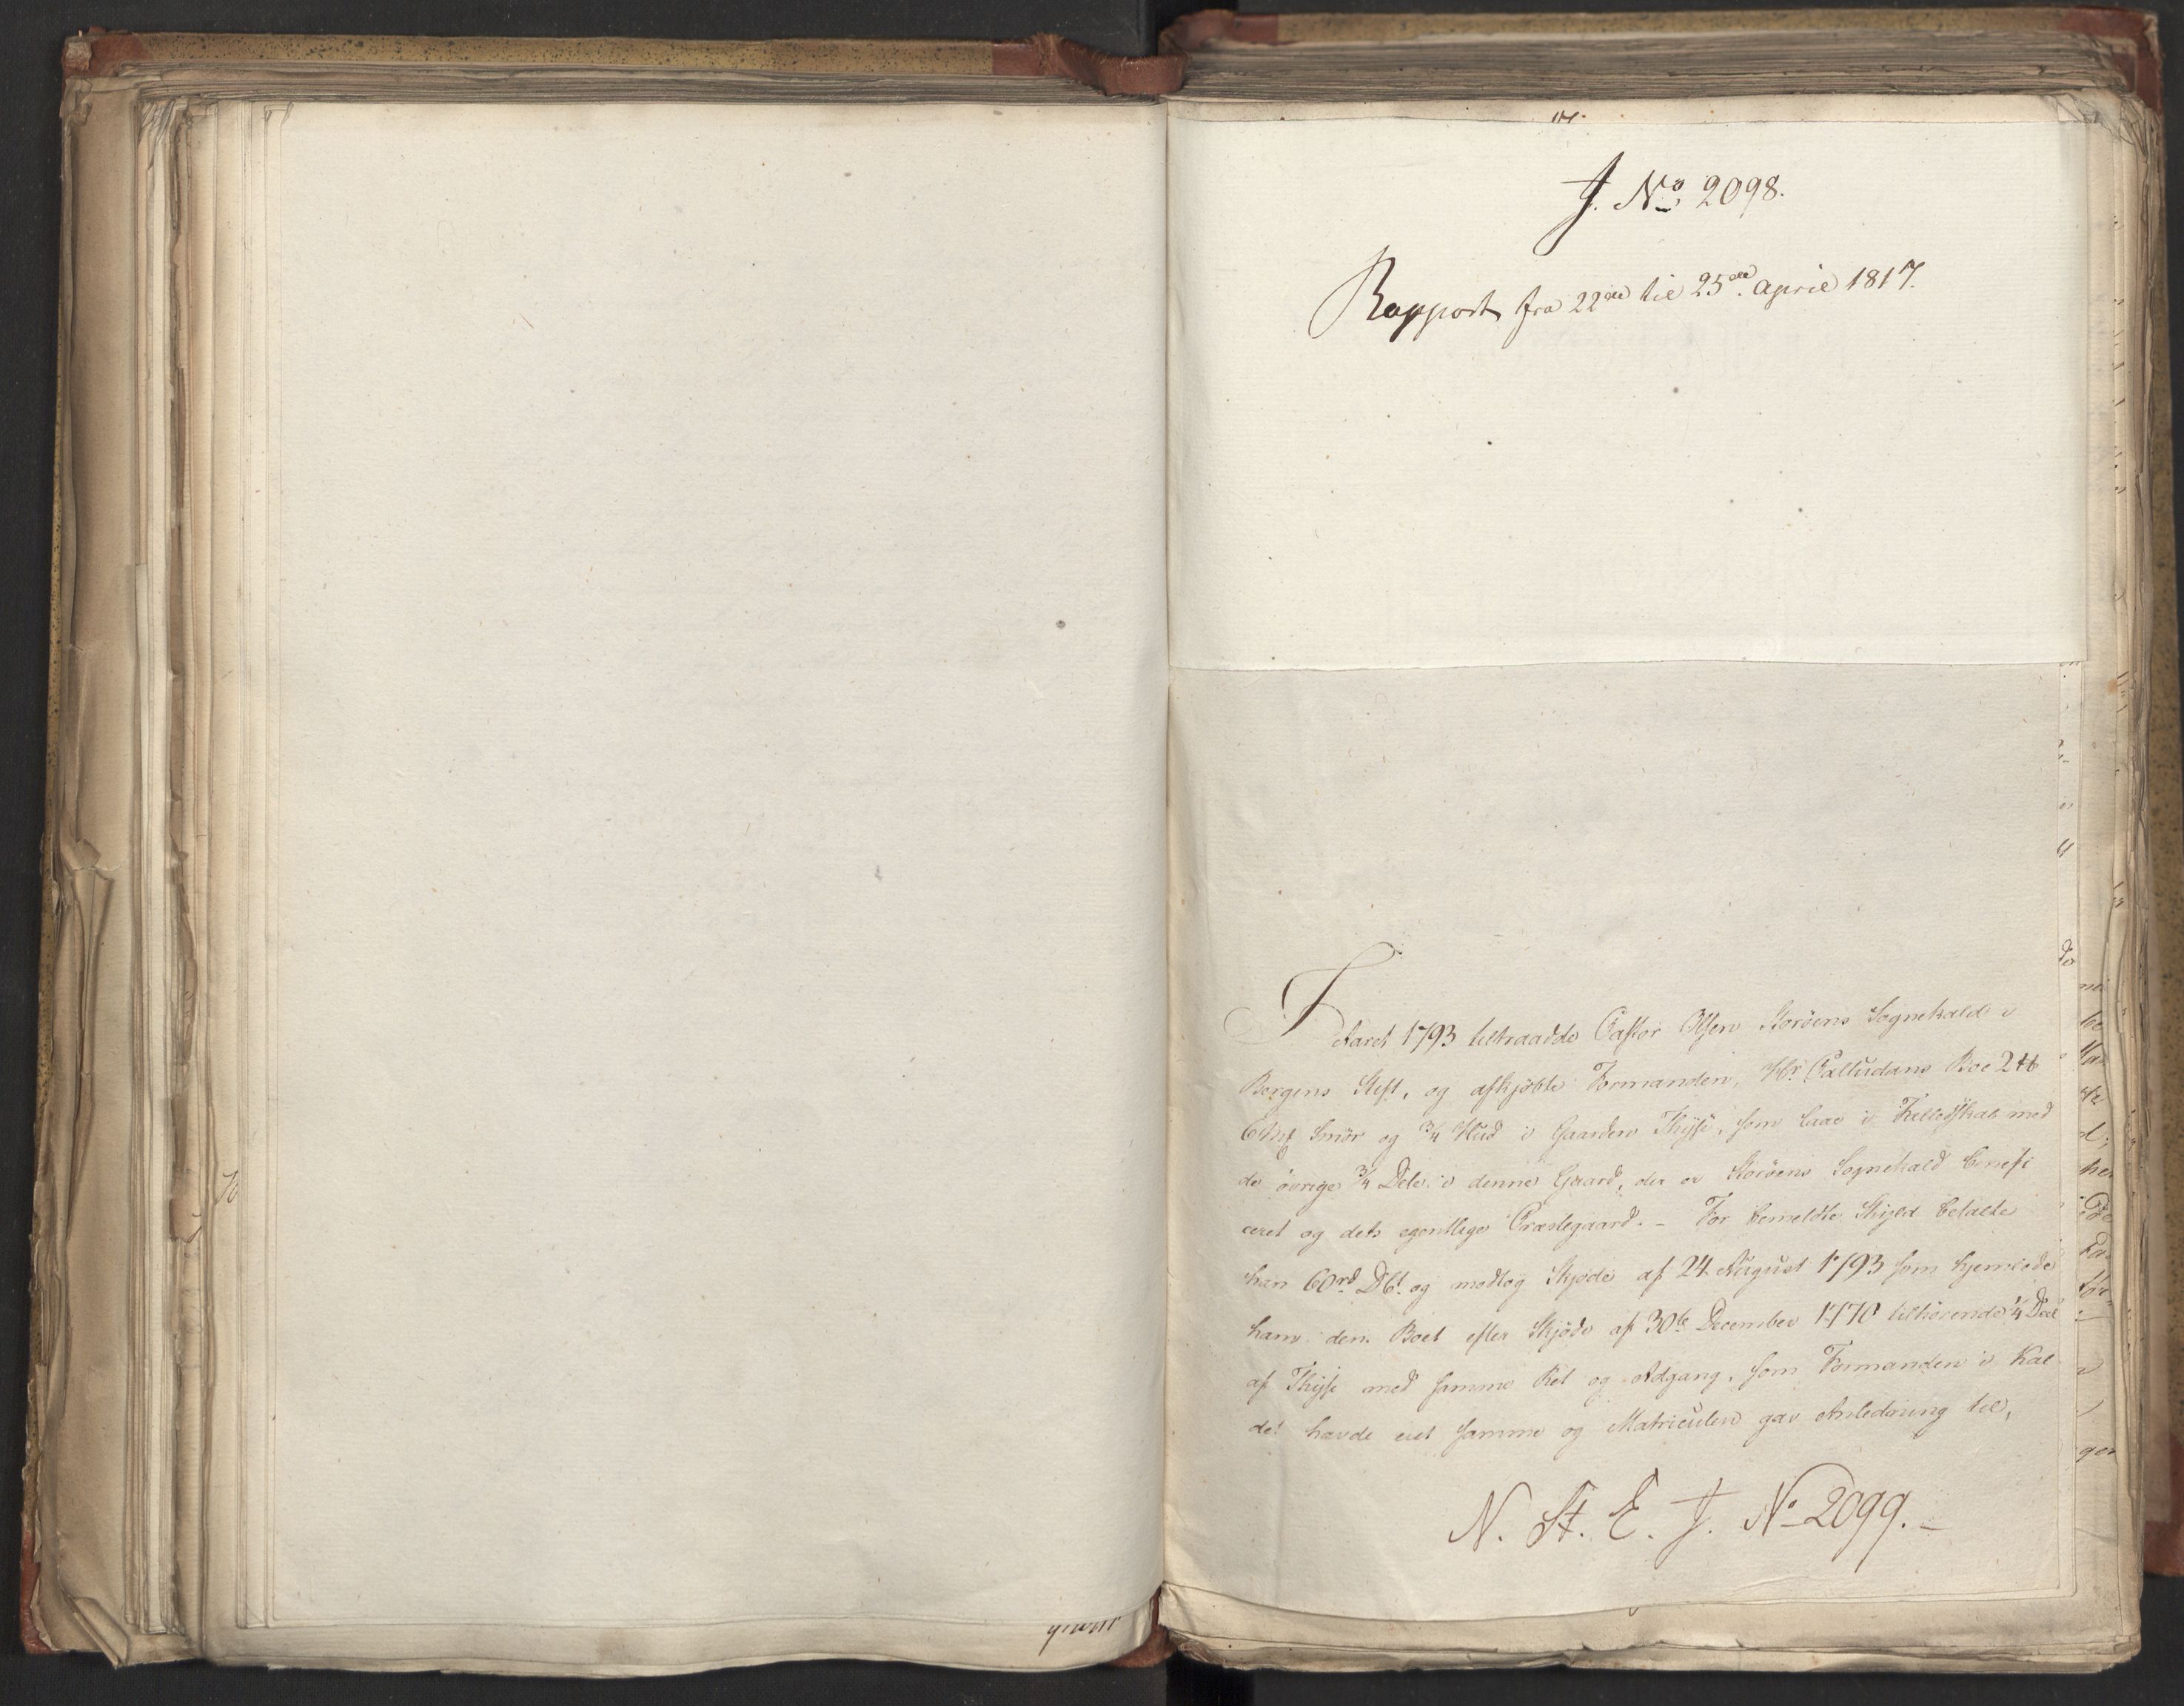 J. No. 2098.
Rapport fra 22de til 25de April 1817.
I
Aaret 1793 tiltraadde Pastor Olsen Storöens Sognekald i
Bergens Stift, og afkjöbte Formanden, Hr. Palludans Boe 2
6 Smör og 3/4 Hud i Gaarden Thysse, som laae i Fellesskab med
de övrige 3/4 Dele i denne Gaard, der er Storöens Sognekald benefi
ceret og dets egentlige Præstegaard. - For bemeldte Skyld betalte
han 60rd Dbl. og modtog Skjöde af 24 August 1793 som hjemlede
ham den Boet efter Skjöde af 30te December 1770 tilhörende 1/4 Deel
af Thysse med samme Ret og Adgang, som Formanden i Kal
det havde eiet samme og Matriculen gav Anledning til,
N. St. E. J. No 2099. -